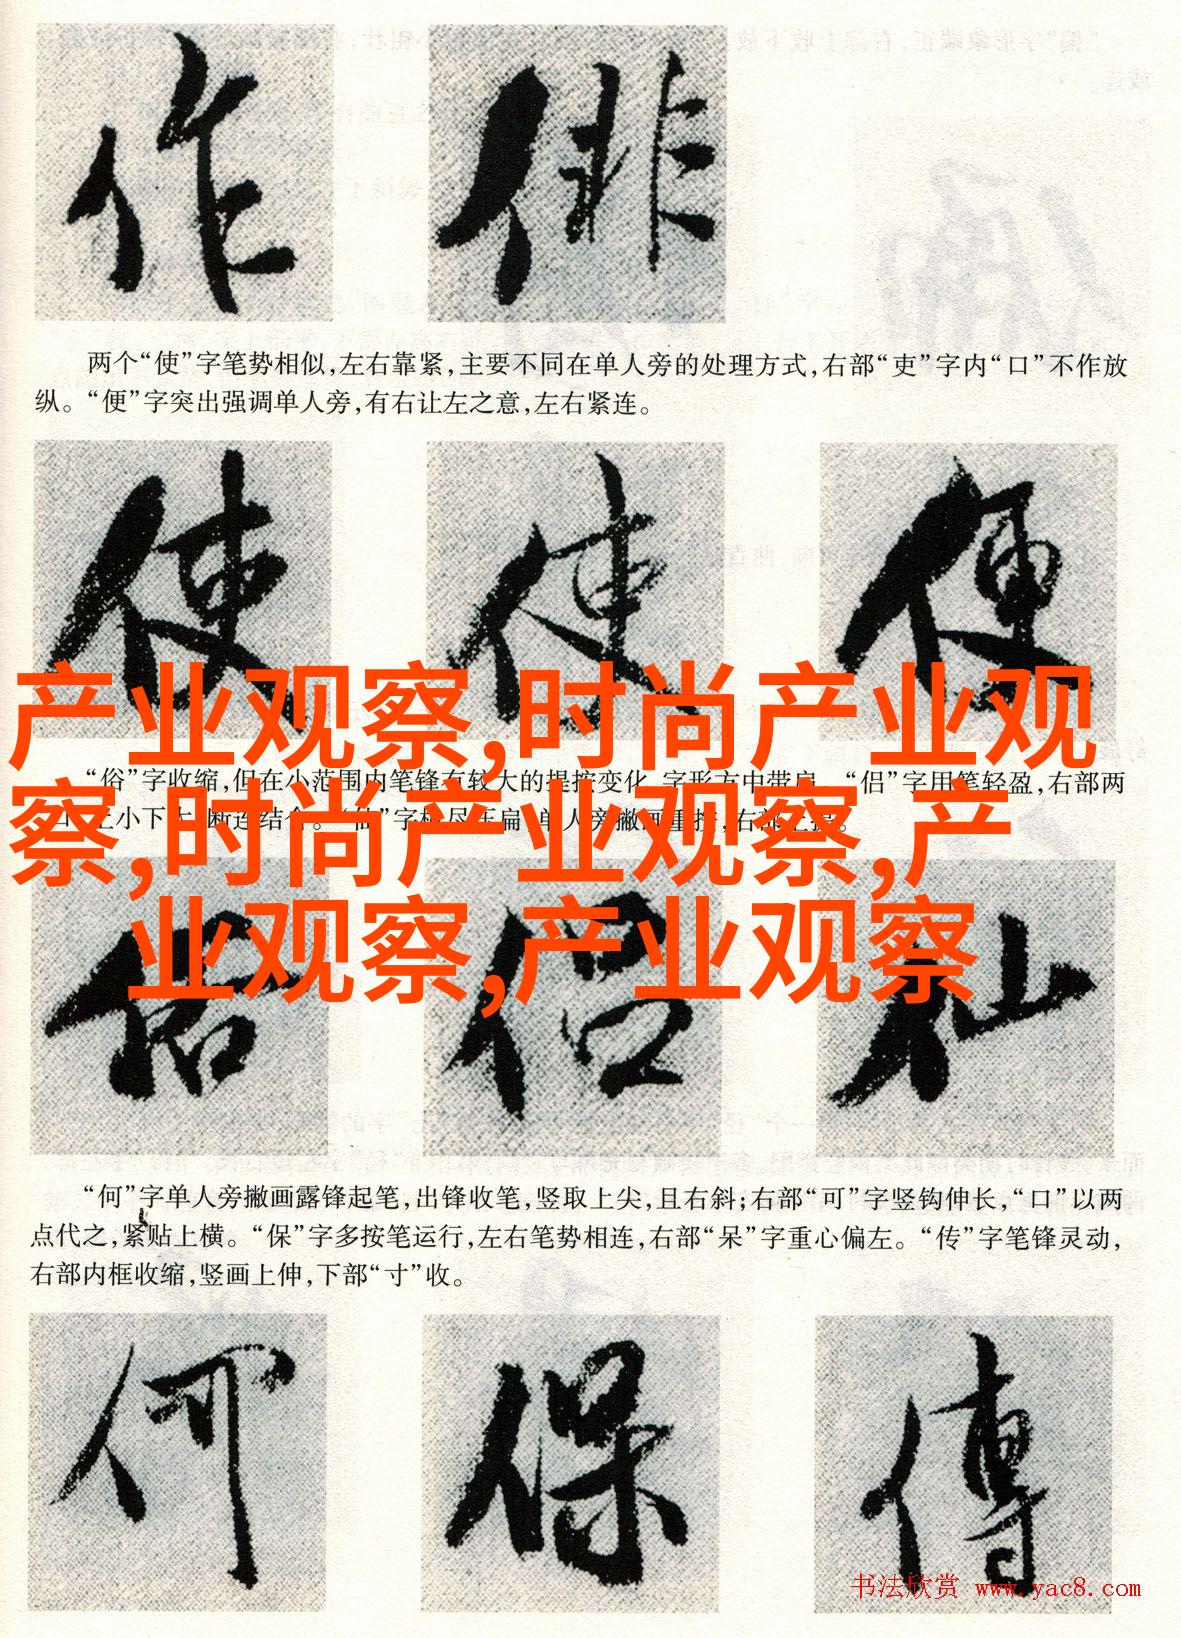 作 俳
两个“使”字笔势相似,左右靠紧,主要不同在单人旁的处理方式,右部“吏”字内“口”不作放
纵。“便”字突出强调单人旁,有右让左之意,左右紧连。
使 使 便
产业观察,时尚产业观
“俗”字收缩,但在小范围内笔锋有较大的提按变化,字形方中带扁。“侣”字用笔轻盈,右部两
察,时尚产业观察,产
小下 断连结合。“仙”字 扁 单人旁撇画重按,右部上提。
业观察,产业观察
俗 侣 仙
“何”字单人旁撇画露锋起笔,出锋收笔,竖取上尖,且右斜;右部“可”字竖钩伸长,“口”以两
点代之,紧贴上横。“保”字多按笔运行,左右笔势相连,右部“呆”字重心偏左。“传”字笔锋灵动,
右部内框收缩,竖画上伸,下部“寸”收。
何 保 傳
书法欣赏 www.yac8.com